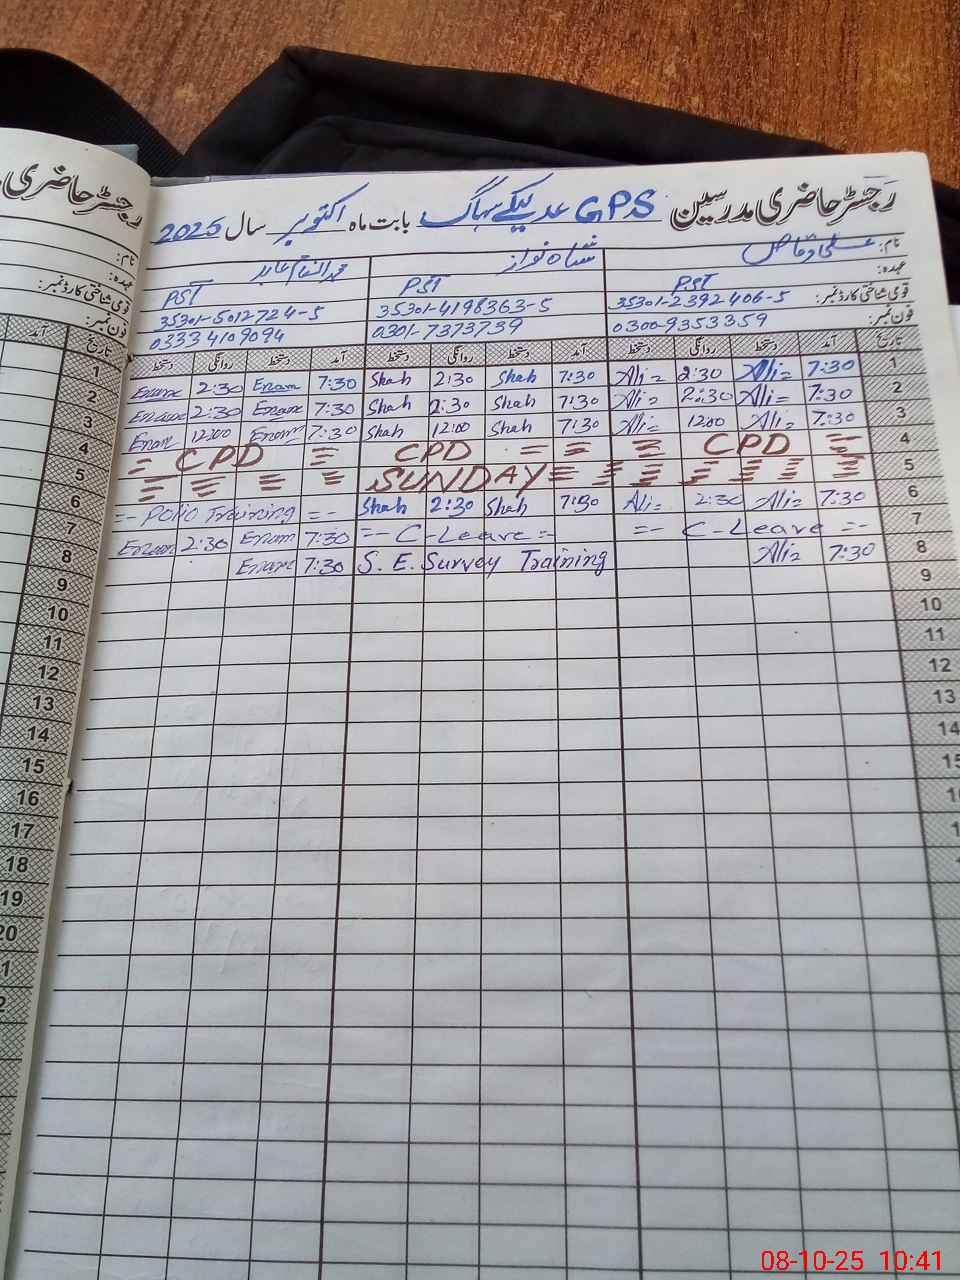 رجسٹر حاضری مدرسین GPS بابت ماہ اکتوبر سال 2025
نام: علی وقاص شاہ نواز
عہدہ: PST PST PST
قومی شناختی کارڈ نمبر: 35301-2392406-5 35301-4198363-5 35301-5012724-5
فون نمبر: 0300-9353359 0301-7373739 03334109094
تاریخ آمد دستخط روانگی دستخط آمد دستخط روانگی دستخط آمد دستخط روانگی دستخط
1 7:30 Ali 2:30 Ali 7:30 Shah 2:30 Shah 7:30 Enam 2:30 Enam
2 7:30 Ali 2:30 Ali 7:30 Shah 2:30 Shah 7:30 Enam 2:30 Enam
3 7:30 Ali 12:00 Ali 7:30 Shah 12:00 Shah 7:30 Enam 12:00 Enam
4 CPD CPD CPD
5 SUNDAY
6 7:30 Ali 2:30 Ali 7:30 Shah 2:30 Shah Polio Training
7 C-Leave C-Leave 7:30 Enam 2:30 Enam
8 7:30 Ali S.E. Survey Training 7:30 Enam
9
10
11
12
13
14
15
رجسٹر حاضری
نام:
عہدہ:
قومی شناختی کارڈ نمبر:
فون نمبر:
تاریخ آمد
1
2
3
4
5
6
7
8
9
10
11
12
13
14
15
16
17
18
19
20
08-10-25 10:41